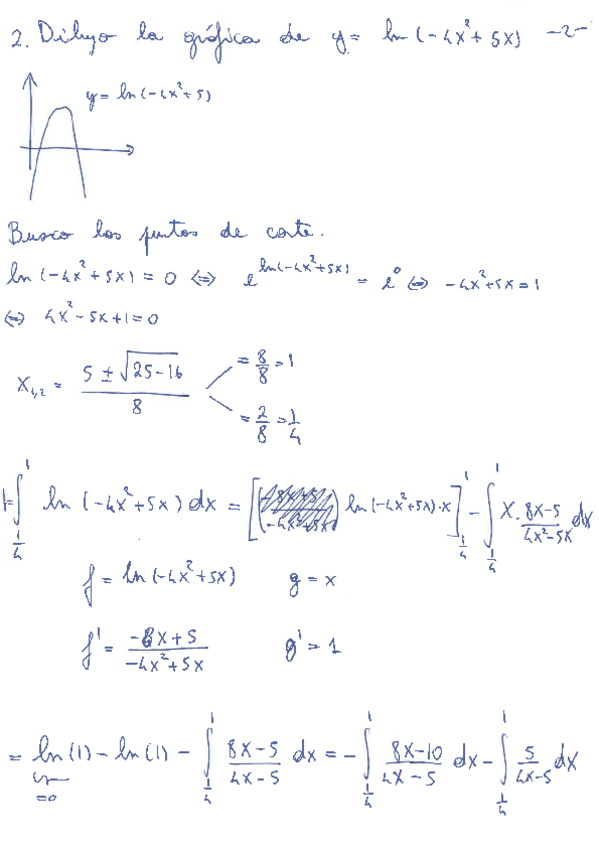 2. Dibujo la gráfica de y = ln(-4x²+5x) -2-
y = ln(-4x²+5)
Busco los puntos de corte.
ln(-4x²+5x) = 0 ⇔ e^{ln(-4x²+5x)} = e⁰ ⇔ -4x²+5x = 1
⇔ 4x²-5x+1 = 0
x₁,₂ = (5 ± √(25-16))/8 = 8/8 = 1
= 2/8 = 1/4
I = ∫_{1/4}^{1} ln(-4x²+5x) dx = [ln(-4x²+5x)·x]_{1/4}^{1} - ∫_{1/4}^{1} x · (8x-5)/(4x²-5x) dx
f = ln(-4x²+5x) g = x
f' = (-8x+5)/(-4x²+5x) g' = 1
= ln(1) - ln(1) - ∫_{1/4}^{1} (8x-5)/(4x-5) dx = - ∫_{1/4}^{1} (8x-10)/(4x-5) dx - ∫_{1/4}^{1} 5/(4x-5) dx
=0